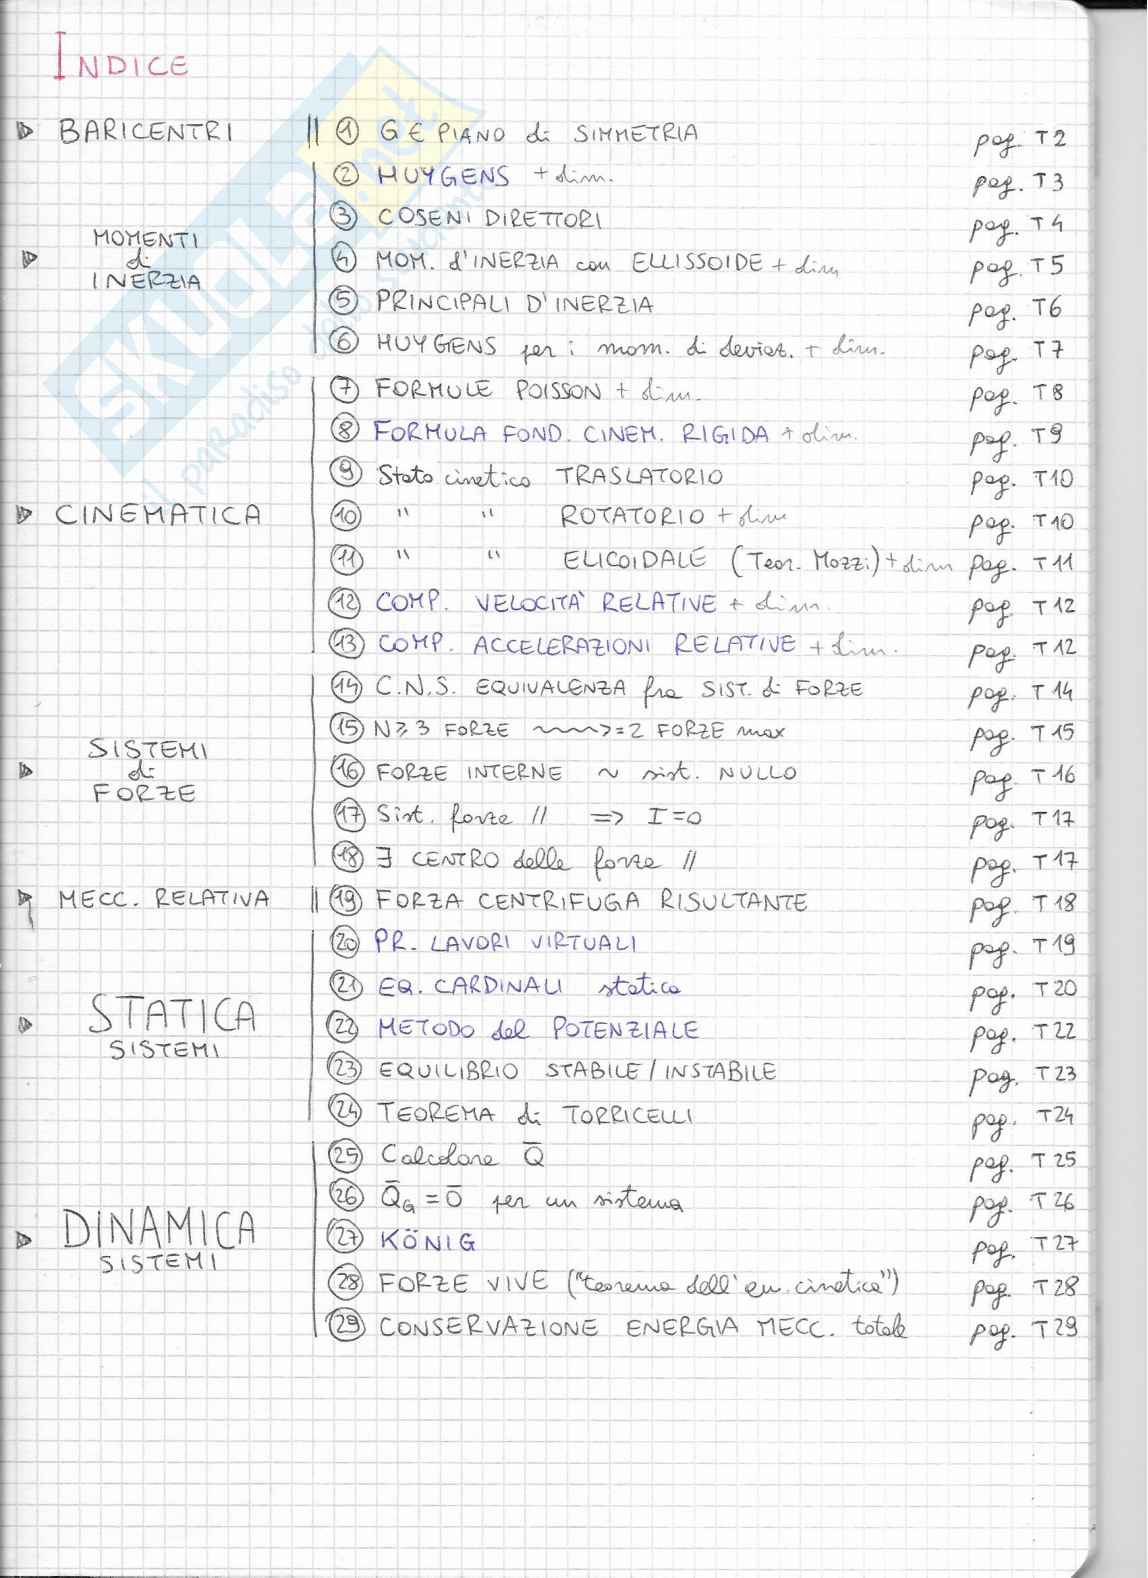 INDICE
BARICENTRI || ① G ∈ PIANO di SIMMETRIA pag. T2
② HUYGENS + dim. pag. T3
③ COSENI DIRETTORI pag. T4
MOMENTI di INERZIA
④ MOM. d'INERZIA con ELLISSOIDE + dim pag. T5
⑤ PRINCIPALI D'INERZIA pag. T6
⑥ HUYGENS per i mom. di deviaz. + dim. pag. T7
⑦ FORMULE POISSON + dim. pag. T8
⑧ FORMULA FOND. CINEM. RIGIDA + dim. pag. T9
⑨ Stato cinetico TRASLATORIO pag. T10
CINEMATICA ⑩ " " ROTATORIO + dim pag. T10
⑪ " " ELICOIDALE (Teor. Mozzi) + dim pag. T11
⑫ COMP. VELOCITA' RELATIVE + dim. pag. T12
⑬ COMP. ACCELERAZIONI RELATIVE + dim. pag. T12
⑭ C.N.S. EQUIVALENZA fra SIST. di FORZE pag. T14
⑮ N ≥ 3 FORZE ~~~> = 2 FORZE max pag. T15
SISTEMI di FORZE
⑯ FORZE INTERNE ~ sist. NULLO pag. T16
⑰ Sist. forze // => I = 0 pag. T17
⑱ ∃ CENTRO delle forze // pag. T17
MECC. RELATIVA || ⑲ FORZA CENTRIFUGA RISULTANTE pag. T18
⑳ PR. LAVORI VIRTUALI pag. T19
㉑ EQ. CARDINALI statica pag. T20
STATICA SISTEMI
㉒ METODO del POTENZIALE pag. T22
㉓ EQUILIBRIO STABILE / INSTABILE pag. T23
㉔ TEOREMA di TORRICELLI pag. T24
㉕ Calcolare Q̄ pag. T25
㉖ Q̄G = Ō per un sistema pag. T26
DINAMICA SISTEMI
㉗ KÖNIG pag. T27
㉘ FORZE VIVE ("teorema dell'en. cinetica") pag. T28
㉙ CONSERVAZIONE ENERGIA MECC. totale pag. T29
SKUOLA.net
il paradiso dello studente